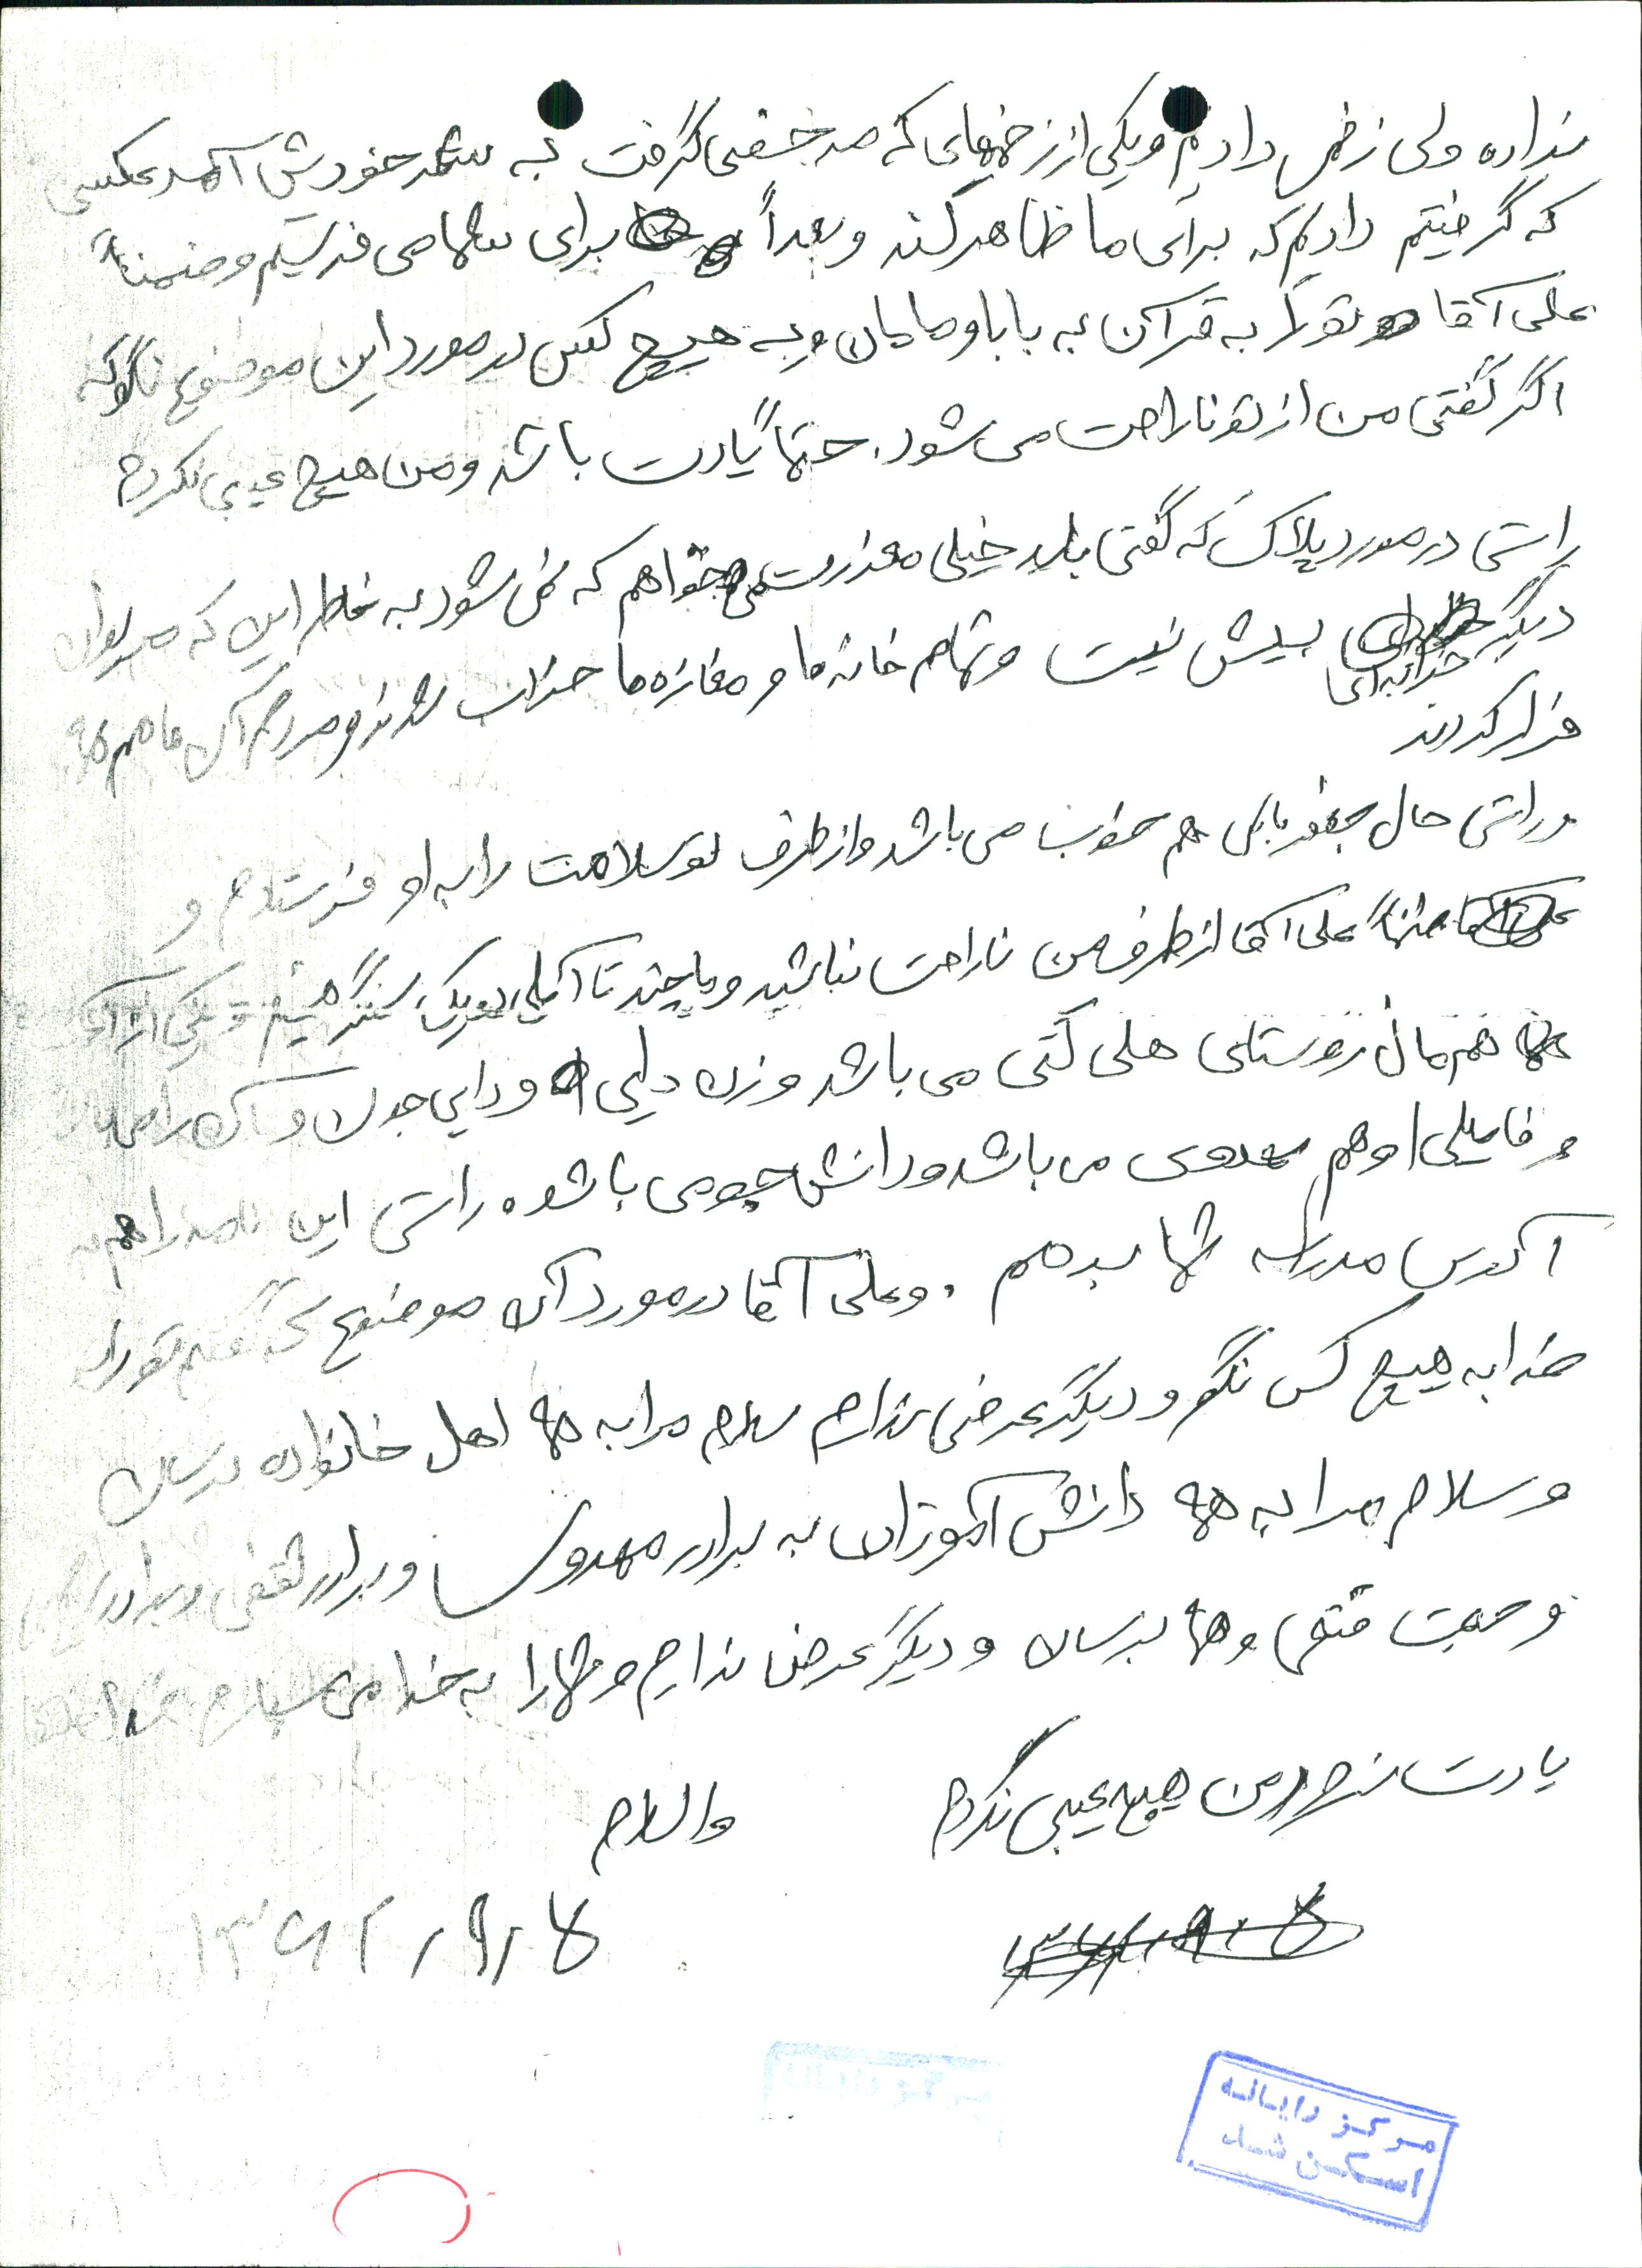 نداده ولی زخمی دادیم و یکی از زخمهای که مرخصی گرفت به شهر خودش آمد عکسی
که گرفتیم دادیم که برای ما ظاهر کند و بعداً برای شما می فرستیم و ضمناً
علی آقا تو را به قرآن به بابا و مامان و به هیچ کس در مورد این موضوع نگو که
اگر گفتی من از تو ناراحت می شود. حتماً یادت باشد و من هیچ عیبی نکردم
راستی در مورد پلاک که گفتی باید خیلی معذرت می خواهم که نمی شود به خاطر این که مریوان
دیگر خرابه ای بیش نیست و تمام خانه ها و مغازه ها خراب شدند و مردم آن ها هم
فرار کردند
و راستی حال جعفر بابایی هم خوب می باشد و از طرف تو سلامت را به او فرستادم و
حتماً علی آقا از طرف من ناراحت نباشید و با چند تا آملی در یک سنگر هستیم و یکی از آن
ها هم مال روستای هلی کتی می باشد و زن دایی و دایی جون و
و فامیلی او هم مهدوی می باشد و دانش جو می باشد. راستی این نامه را هم به
آدرس مدرسه شما بدهم. و علی آقا در مورد آن موضوع که گفتم تو را به
خدا به هیچ کس نگو و دیگر عرضی ندارم سلام مرا به همه اهل خانواده برسان
و سلام مرا به همه دانش آموزان به برادر مهدوی و برادر ثقفی و برادر
و حجت برسان و دیگر عرض ندارم و شما را به خدا می سپارم
یادت نرود من هیچ عیبی نکردم
والسلام
۱۳۶۲/۹/۴
مرکز رایانه
اسکن شد